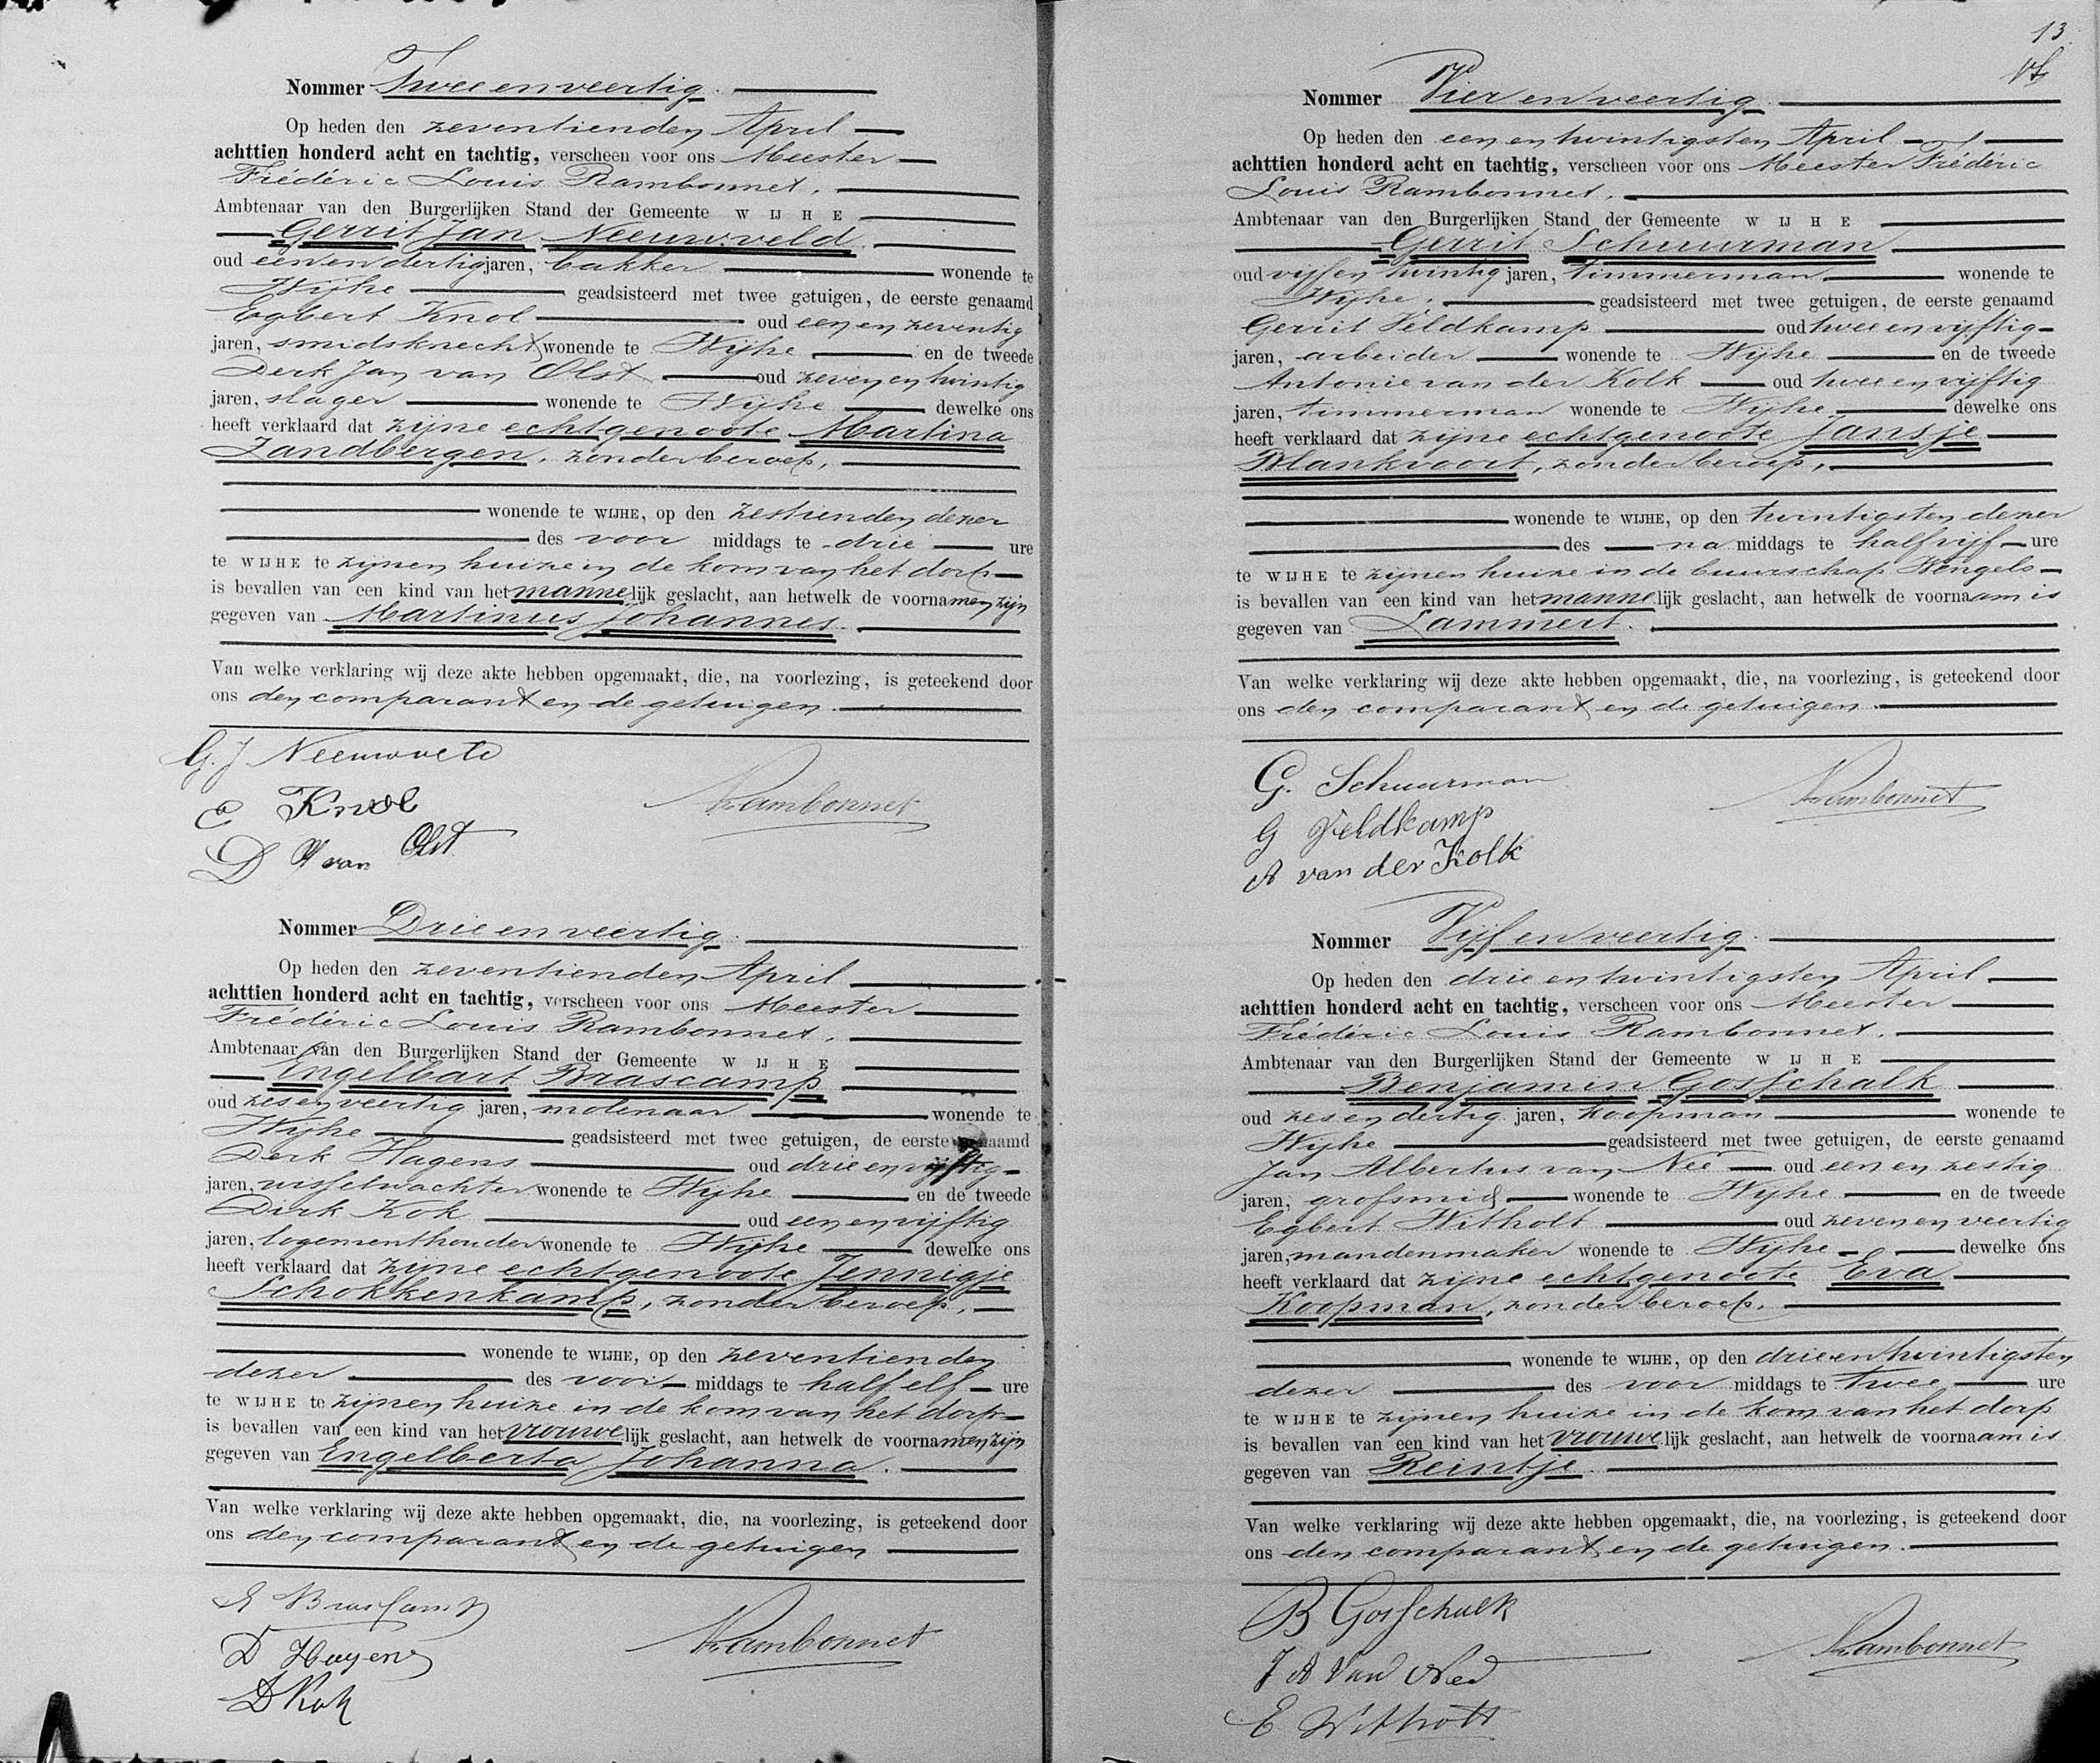 Nommer Twee en veertig.
Op heden den zeventienden April
achttien honderd acht en tachtig, verscheen voor ons Meester
Frédéric Louis Rambonnet,
Ambtenaar van den Burgerlijken Stand der Gemeente WIJHE
Gerrit Jan Neeuwveld
oud een en dertig jaren, bakker wonende te
Wijhe geadsisteerd met twee getuigen, de eerste genaamd
Egbert Knol oud een en zeventig
jaren, smidsknecht wonende te Wijhe en de tweede
Derk Jan van Olst oud zeven en twintig
jaren, slager wonende te Wijhe dewelke ons
heeft verklaard dat zijne echtgenoote Martina
Zandbergen, zonder beroep,
wonende te WIJHE, op den zestienden dezer
des voor middags te drie ure
te WIJHE te zijnen huize in de kom van het dorp
is bevallen van een kind van het mannelijk geslacht, aan hetwelk de voornamen zijn
gegeven van Martinus Johannes.
Van welke verklaring wij deze akte hebben opgemaakt, die, na voorlezing, is geteekend door
ons den comparant en de getuigen.
G. J Neeuwveld
E Knol
Rambonnet
D J van Olst
Nommer Drie en veertig.
Op heden den zeventienden April
achttien honderd acht en tachtig, verscheen voor ons Meester
Frédéric Louis Rambonnet,
Ambtenaar van den Burgerlijken Stand der Gemeente WIJHE
Engelbart Brascamp
oud zes en veertig jaren, molenaar wonende te
Wijhe geadsisteerd met twee getuigen, de eerste genaamd
Derk Hagens oud drie en vijftig
jaren, wisselwachter wonende te Wijhe en de tweede
Dirk Kok oud een en vijftig
jaren, logementhouder wonende te Wijhe dewelke ons
heeft verklaard dat zijne echtgenoote Jennigje
Schokkenkamp, zonder beroep,
wonende te WIJHE, op den zeventienden
dezer des voor middags te half elf ure
te WIJHE te zijnen huize in de kom van het dorp
is bevallen van een kind van het vrouwelijk geslacht, aan hetwelk de voornamen zijn
gegeven van Engelberta Johanna.
Van welke verklaring wij deze akte hebben opgemaakt, die, na voorlezing, is geteekend door
ons den comparant en de getuigen
E Brascamp
D Hagens
Rambonnet
D Kok
13
Nommer Vier en veertig.
Op heden den een en twintigsten April
achttien honderd acht en tachtig, verscheen voor ons Meester Frédéric
Louis Rambonnet,
Ambtenaar van den Burgerlijken Stand der Gemeente WIJHE
Gerrit Schuurman
oud vijf en twintig jaren, timmerman wonende te
Wijhe, geadsisteerd met twee getuigen, de eerste genaamd
Gerrit Veldkamp oud twee en vijftig
jaren, arbeider wonende te Wijhe en de tweede
Antonie van der Kolk oud twee en vijftig
jaren, timmerman wonende te Wijhe dewelke ons
heeft verklaard dat zijne echtgenoote Jansje
Blankvoort, zonder beroep,
wonende te WIJHE, op den twintigsten dezer
des na middags te half vijf ure
te WIJHE te zijnen huize in de buurschap Wengelo
is bevallen van een kind van het mannelijk geslacht, aan hetwelk de voornaam is
gegeven van Lammert.
Van welke verklaring wij deze akte hebben opgemaakt, die, na voorlezing, is geteekend door
ons den comparant en de getuigen.
G. Schuurman
Rambonnet
G Veldkamp
A van der Kolk
Nommer Vijf en veertig.
Op heden den drie en twintigsten April
achttien honderd acht en tachtig, verscheen voor ons Meester
Frédéric Louis Rambonnet,
Ambtenaar van den Burgerlijken Stand der Gemeente WIJHE
Benjamin Gosschalk
oud zes en dertig jaren, koopman wonende te
Wijhe geadsisteerd met twee getuigen, de eerste genaamd
Jan Albertus van Nee oud een en zestig
jaren, grofsmid wonende te Wijhe en de tweede
Egbert Witholt oud zeven en veertig
jaren, mandenmaker wonende te Wijhe dewelke ons
heeft verklaard dat zijne echtgenoote Eva
Koopman, zonder beroep,
wonende te WIJHE, op den drie en twintigsten
dezer des voor middags te twee ure
te WIJHE te zijnen huize in de kom van het dorp
is bevallen van een kind van het vrouwelijk geslacht, aan hetwelk de voornaam is
gegeven van Reintje.
Van welke verklaring wij deze akte hebben opgemaakt, die, na voorlezing, is geteekend door
ons den comparant en de getuigen.
B Gosschalk
Rambonnet
J A Van Nee
E Witholt